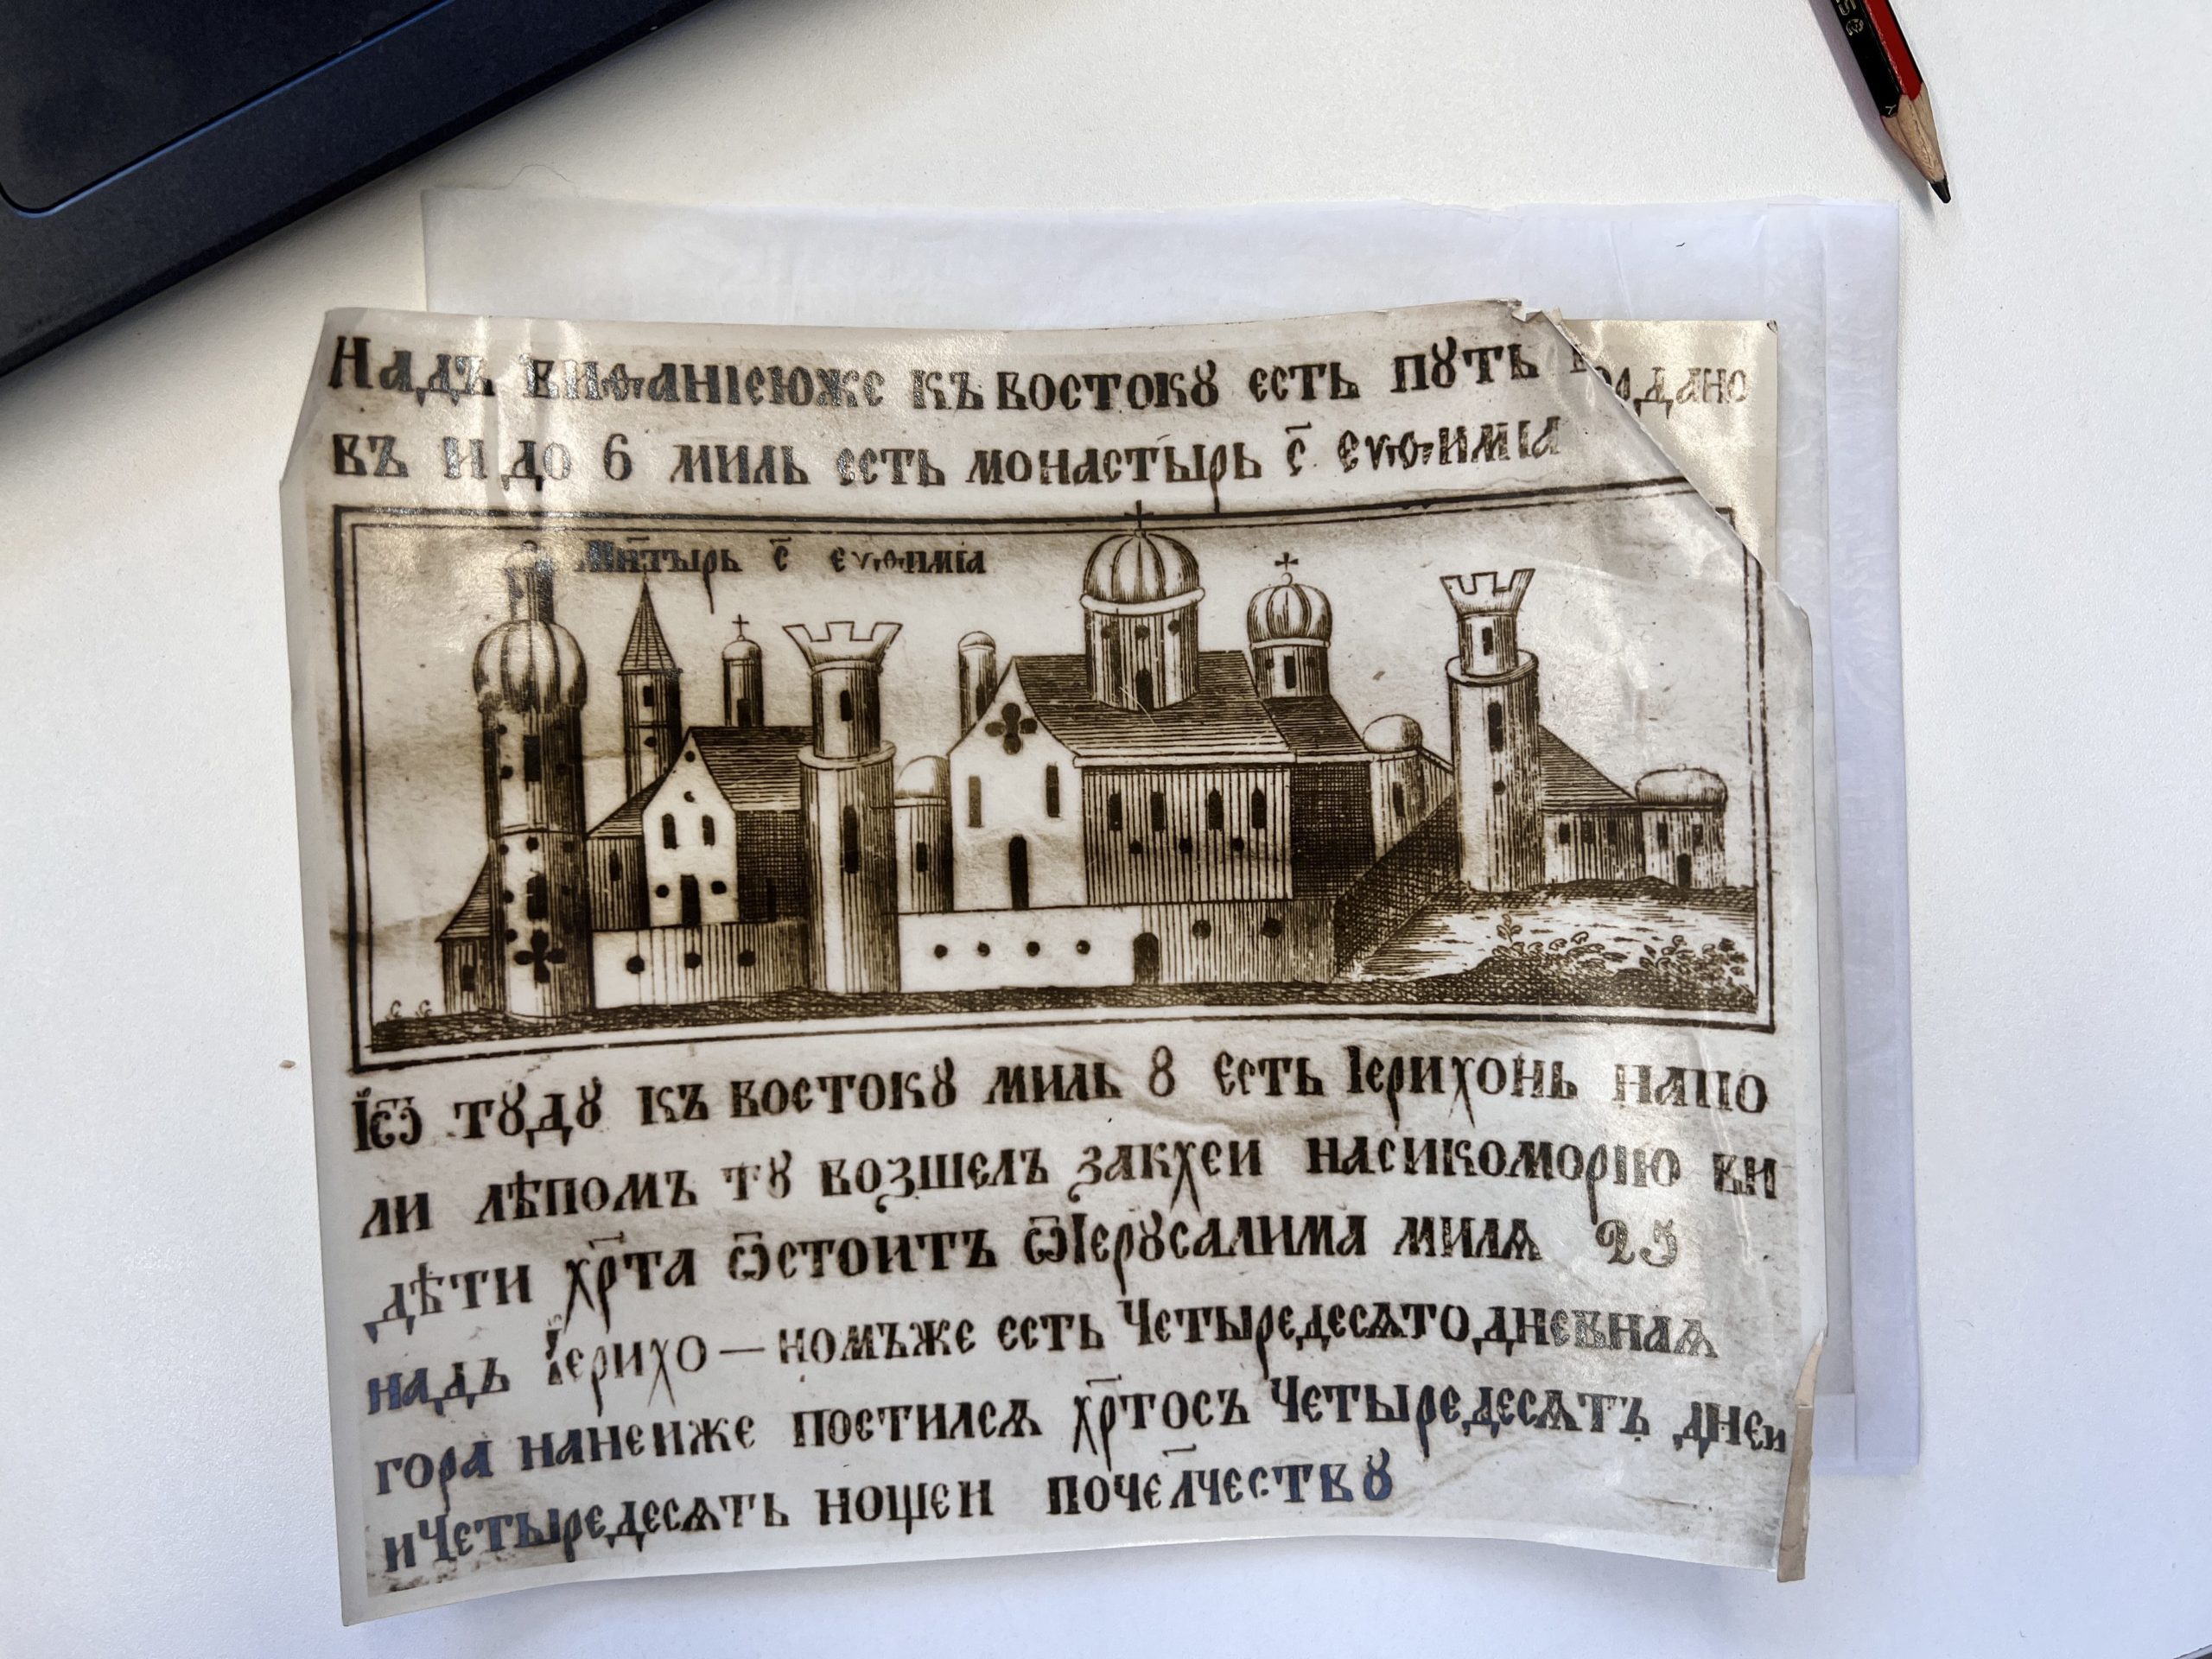 Надъ виѳаніеюже къ востокꙋ єсть пꙋть
въ и до 6 миль єсть монастырь с҃ єѵѳимїа
Мн҃тырь с҃ єѵѳимїа
Їѿ тꙋдꙋ къ востокꙋ миль 8 єсть Іерихонь напо
ли лѣпомъ тꙋ возшелъ закхеи насикоморїю ви
дѣти хр҃та ѿстоитъ ѿІерꙋсалима милѧ 25
надь Їерихо — номъже єсть Четыредесѧтодневнаѧ
гора нанеиже постилсѧ хр҃тосъ Четыредесѧтъ днеи
иЧетыредесѧть нощеи почел҃чествꙋ